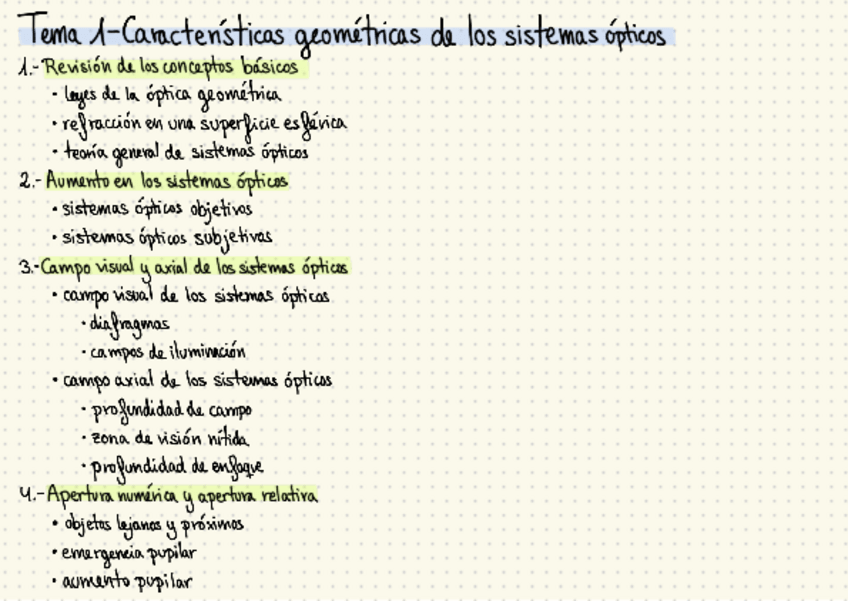 Tema 1-Características geométricas de los sistemas ópticos
1.- Revisión de los conceptos básicos
· leyes de la óptica geométrica
· refracción en una superficie esférica
· teoría general de sistemas ópticos
2.- Aumento en los sistemas ópticos
· sistemas ópticos objetivos
· sistemas ópticos subjetivos
3.- Campo visual y axial de los sistemas ópticos
· campo visual de los sistemas ópticos
· diafragmas
· campos de iluminación
· campo axial de los sistemas ópticos
· profundidad de campo
· zona de visión nítida
· profundidad de enfoque
4.- Apertura numérica y apertura relativa
· objetos lejanos y próximos
· emergencia pupilar
· aumento pupilar